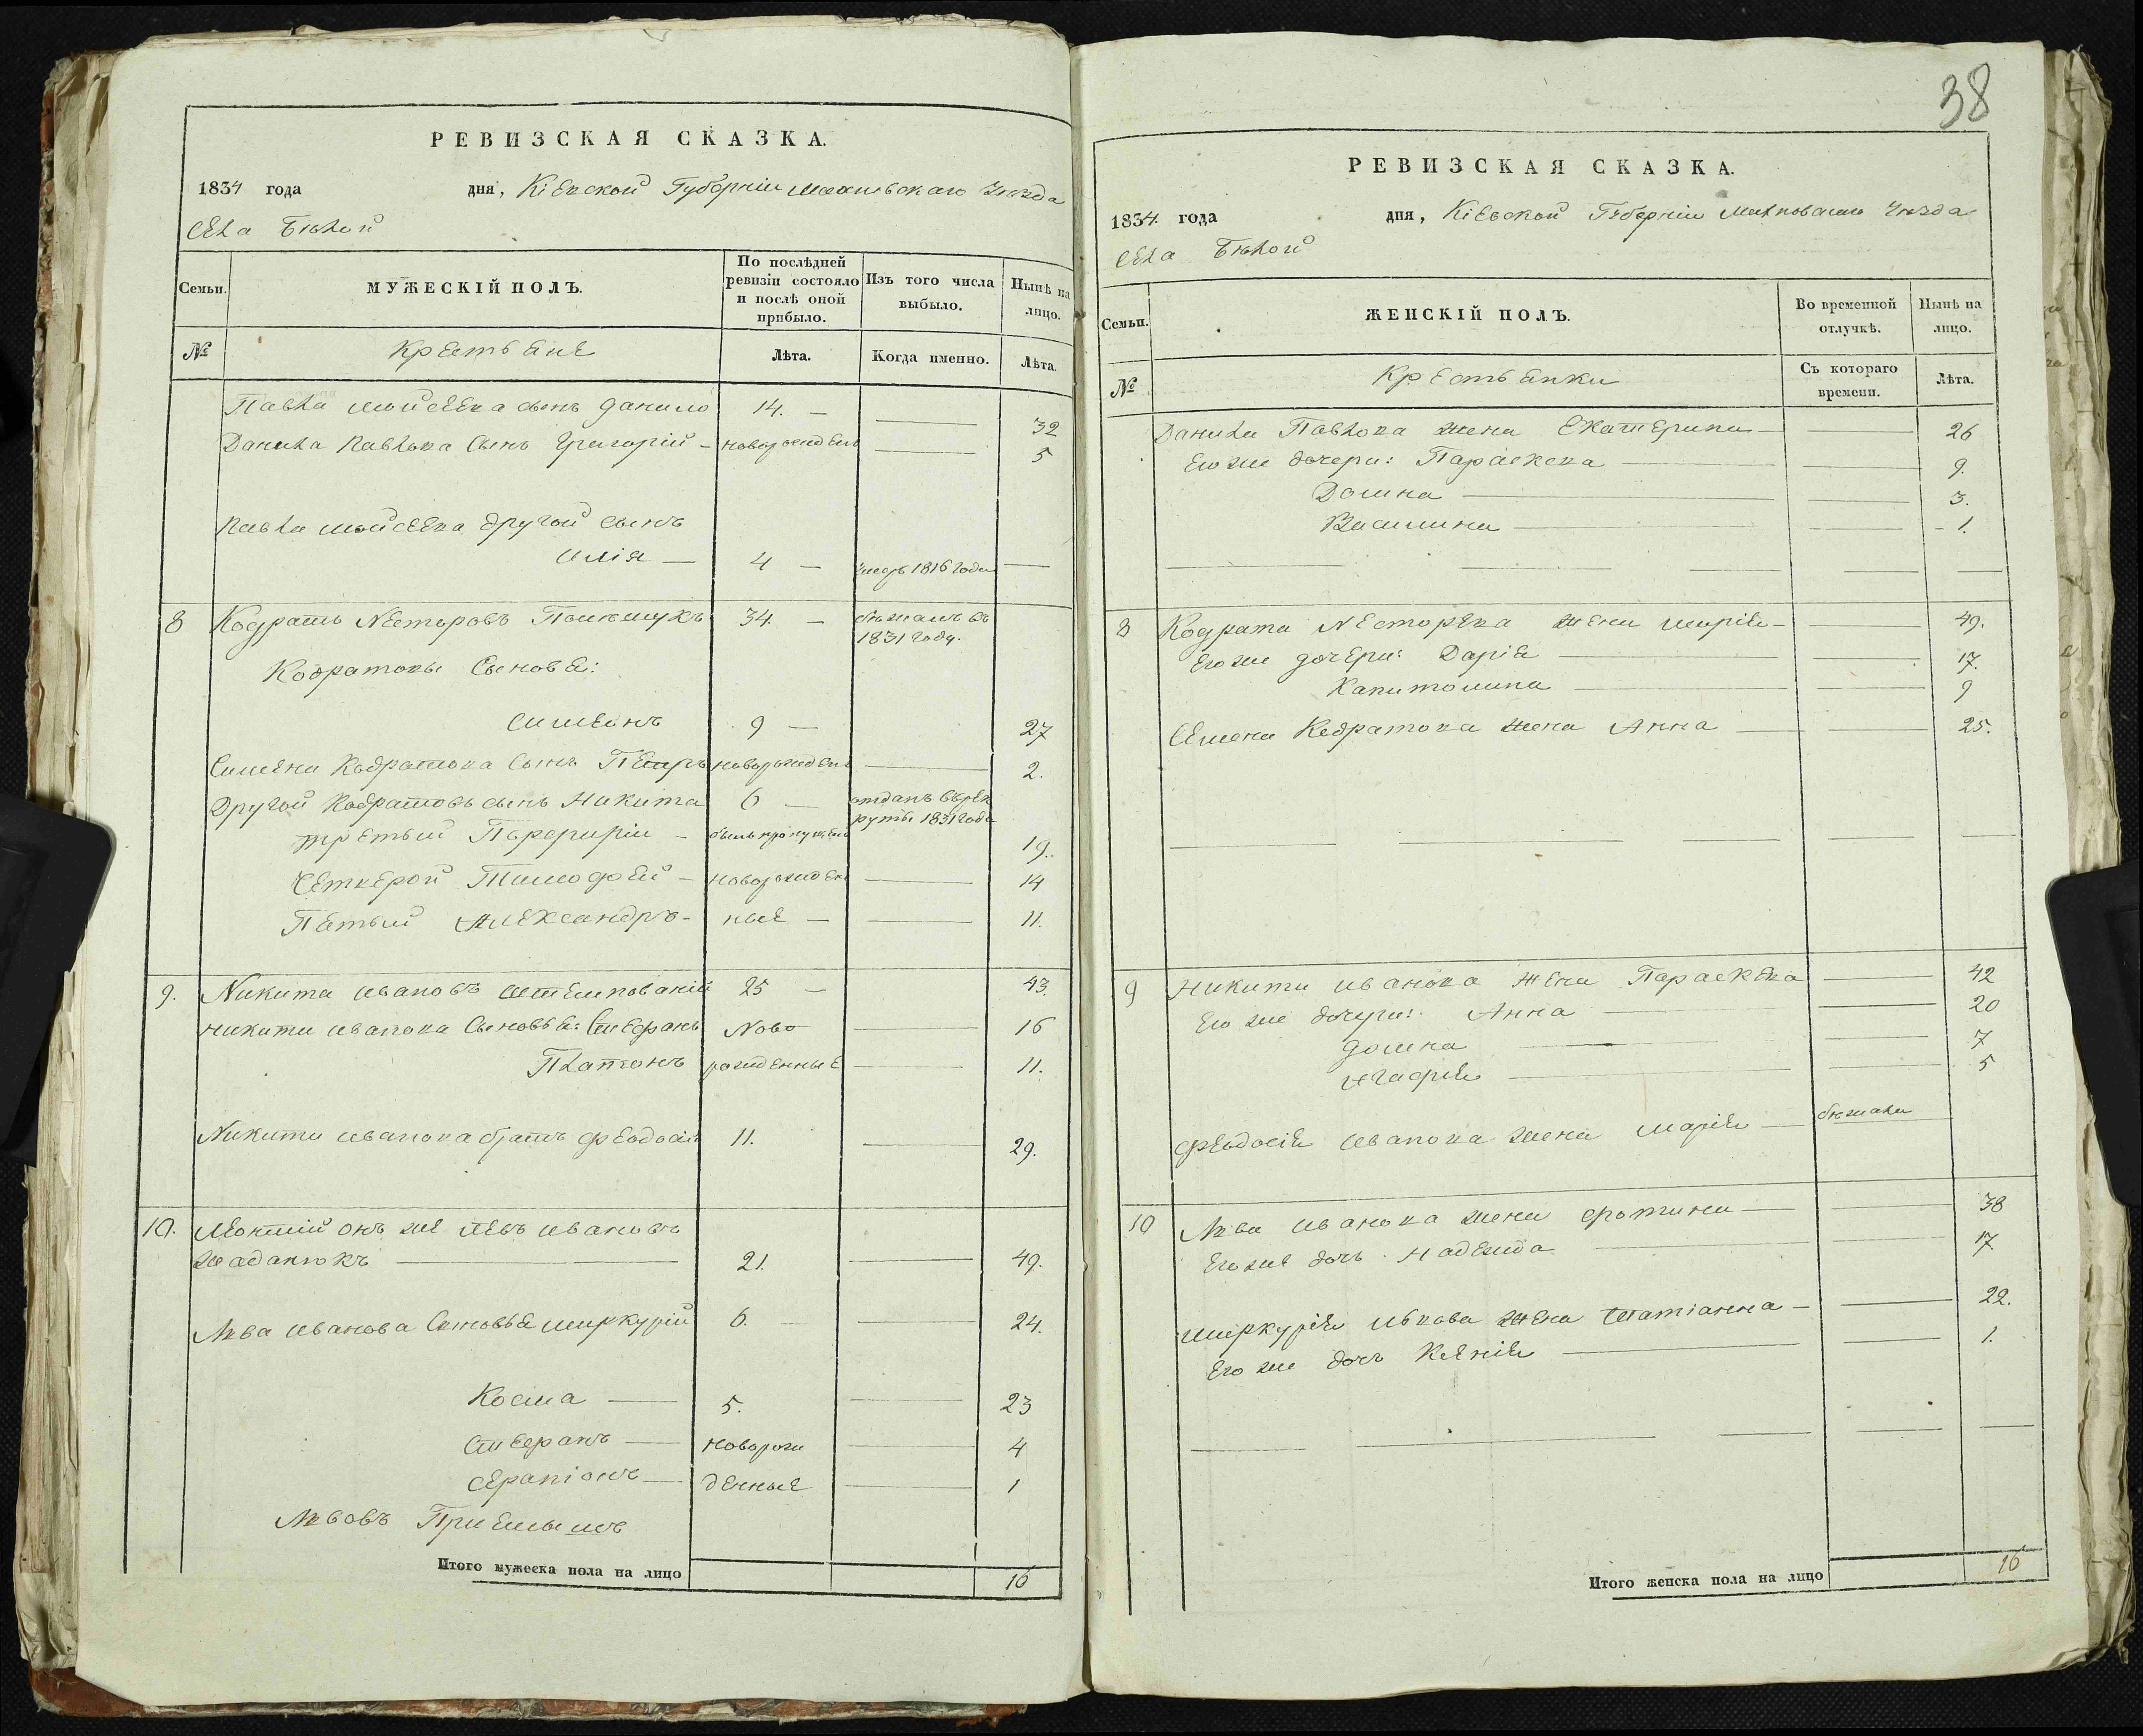 РЕВИЗСКАЯ СКАЗКА.
1834 года дня, Кіевской Губерніи Махновскаго Уѣзда
села Бѣлой
Семьи. МУЖЕСКІЙ ПОЛЪ. По послѣдней ревизіи состояло и послѣ оной прибыло. Изъ того числа выбыло. Нынѣ на лицо.
№ Крестьяне Лѣта. Когда именно. Лѣта.
Павла Мойсеева сынъ Данило 14. — 32
Данила Павлова Сынъ Григорій - новорожден 5
Павла Мойсеева другой сынъ
Илія — 4 — умеръ 1816 года —
8 Кодратъ Несторовъ Полѣщукъ 34. — бѣжалъ въ
1831 году.
Кодратовы Сыновья:
Симеонъ 9 — 27
Симеона Кодратова Сынъ Петръ новорожден 2.
Другой Кодратовъ сынъ Никита 6 — отданъ въ рек
руты 1831 года
третый Порфирій - былъ пропущен 19.
Четверой Тимофей - новорожден 14
Пятый Александръ - ные — 11.
9. Никита Ивановъ 25 — 43.
Никиты Иванова Сыновья: Стефанъ Ново 16
Платонъ рожденные 11.
Никиты Иванова братъ Феодосій 11. 29.
10. Леонтій онъ же Левъ Ивановъ
21. 49.
Льва Иванова Сыновья Меркурій 6. 24.
Косма — 5. 23
Стефанъ — новорож 4
Серапіонъ — денные 1
Львовъ Пріемышъ
Итого мужеска пола на лицо 16
38
РЕВИЗСКАЯ СКАЗКА.
1834 года дня, Кіевской Губерніи Махновскаго Уѣзда
села Бѣлой
Семьи. ЖЕНСКІЙ ПОЛЪ. Во временной отлучкѣ. Нынѣ на лицо.
№ Крестьянки Съ котораго времени. Лѣта.
Данила Павлова жена Екатерина — 26
Его же дочери: Параскева — 9.
Домна — 3.
Василина — 1.
8 Кодрата Несторева жена Марія - 49.
Его же дочери: Дарія — 17.
Капитолина — 9
Семена Кодратова жена Анна — 25.
9 Никиты Иванова жена Параскева 42
Его же дочери: Анна — 20
Домна 7
Агафія — 5
Феодосія Иванова жена Марія — бѣжала
10 Льва Иванова жена Фотина — 38
Его же дочь Надежда 17.
Меркурія Львова жена Татіанна — 22.
Его же дочь Ксенія — 1.
Итого женска пола на лицо 16